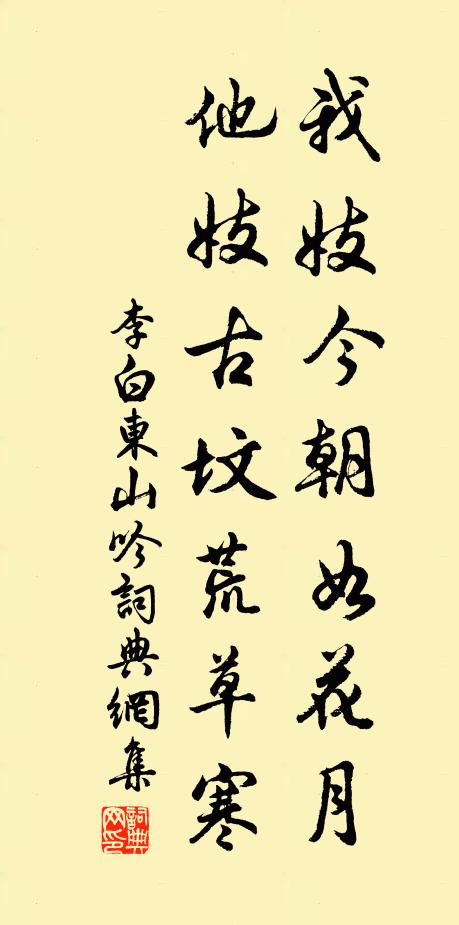 我妓今朝如花月
他妓古坟荒草寒
李白東山吟詞典網集
詞典网印